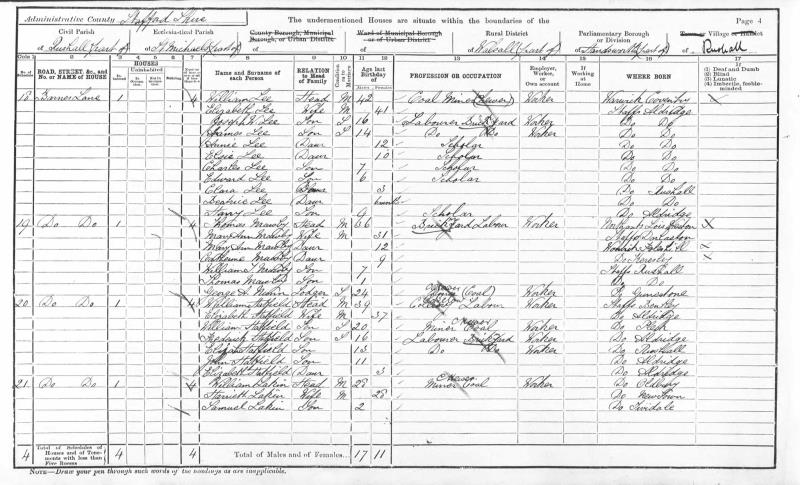 Administrative County Stafford Shire
The undermentioned Houses are situate within the boundaries of the
Page 4
Civil Parish
of Rushall (part of)
Ecclesiastical Parish
of St Michaels (part of)
County Borough, Municipal Borough, or Urban District
of
Ward of Municipal Borough or of Urban District
of
Rural District
of Walsall (part of)
Parliamentary Borough or Division
of Handsworth (part of)
Town or Village or Hamlet
of Rushall
Cols. 1 2 3 4 5 6 7 8 9 10 11 12 13 14 15 16 17
No. of Schedule
ROAD, STREET, &c., and No. or NAME of HOUSE
HOUSES
Inhabited
Uninhabited
Name and Surname of each Person
RELATION to Head of Family
Condition as to Marriage
Age last Birthday of
Males
Females
PROFESSION OR OCCUPATION
Employer, Worker, or Own account
If Working at Home
WHERE BORN
(1) Deaf and Dumb
(2) Blind
(3) Lunatic
(4) Imbecile, feeble-minded
18 Barnes Lane 1 4 William Lee Head M 42 Coal Miner (Hewer) Worker Warwick Coventry
Elizabeth Lee Wife M 41 Staffs Aldridge
Joseph W. Lee Son S 16 Labourer Brick Yard Worker Do Do
James Lee Son S 14 Do Do Worker Do Do
Annie Lee Daur 12 Scholar Do Do
Elsie Lee Daur 10 Scholar Do Do
Charles Lee Son 7 Scholar Do Do
Edward Lee Son 6 Scholar Do Do
Clara Lee Daur 3 Do Rushall
Beatrice Lee Daur Do Do
Harry Lee Son 9 Scholar Do Aldridge
19 Do Do 1 4 Thomas Mawby Head M 36 Brick Yard Labour Worker
Mary Ann Mawby Wife M 31 Staffs
Mary Ann Mawby Daur 12
Catherine Mawby Daur 9 Do
William Mawby Son 7 Staffs Rushall
Thomas Mawby Son 1 Do Do
George A. Lodger S 24 (Coal) Worker Do
20 Do Do 1 4 William Hatfield Head M 39 Labour Worker Staffs
Elizabeth Hatfield Wife M 37 Do Aldridge
William Hatfield Son S 20 Miner Coal Hewer Worker Do
Frederick Hatfield Son S 16 Labourer Brick Yard Worker Do Aldridge
Hatfield Son 13 Do Do Worker Do Rushall
John Hatfield Son 11 Do Aldridge
Elizabeth Hatfield Daur 3 Do Aldridge
21 Do Do 1 4 William Lakin Head M 28 Miner Coal Hewer Worker Do Oldbury
Harriett Lakin Wife M 28 Do Newtown
Samuel Lakin Son 2 Do Tividale
4 Total of Schedules of Houses and of Tenements with less than Five Rooms 4 4 Total of Males and of Females... 17 11
NOTE—Draw your pen through such words of the headings as are inapplicable.